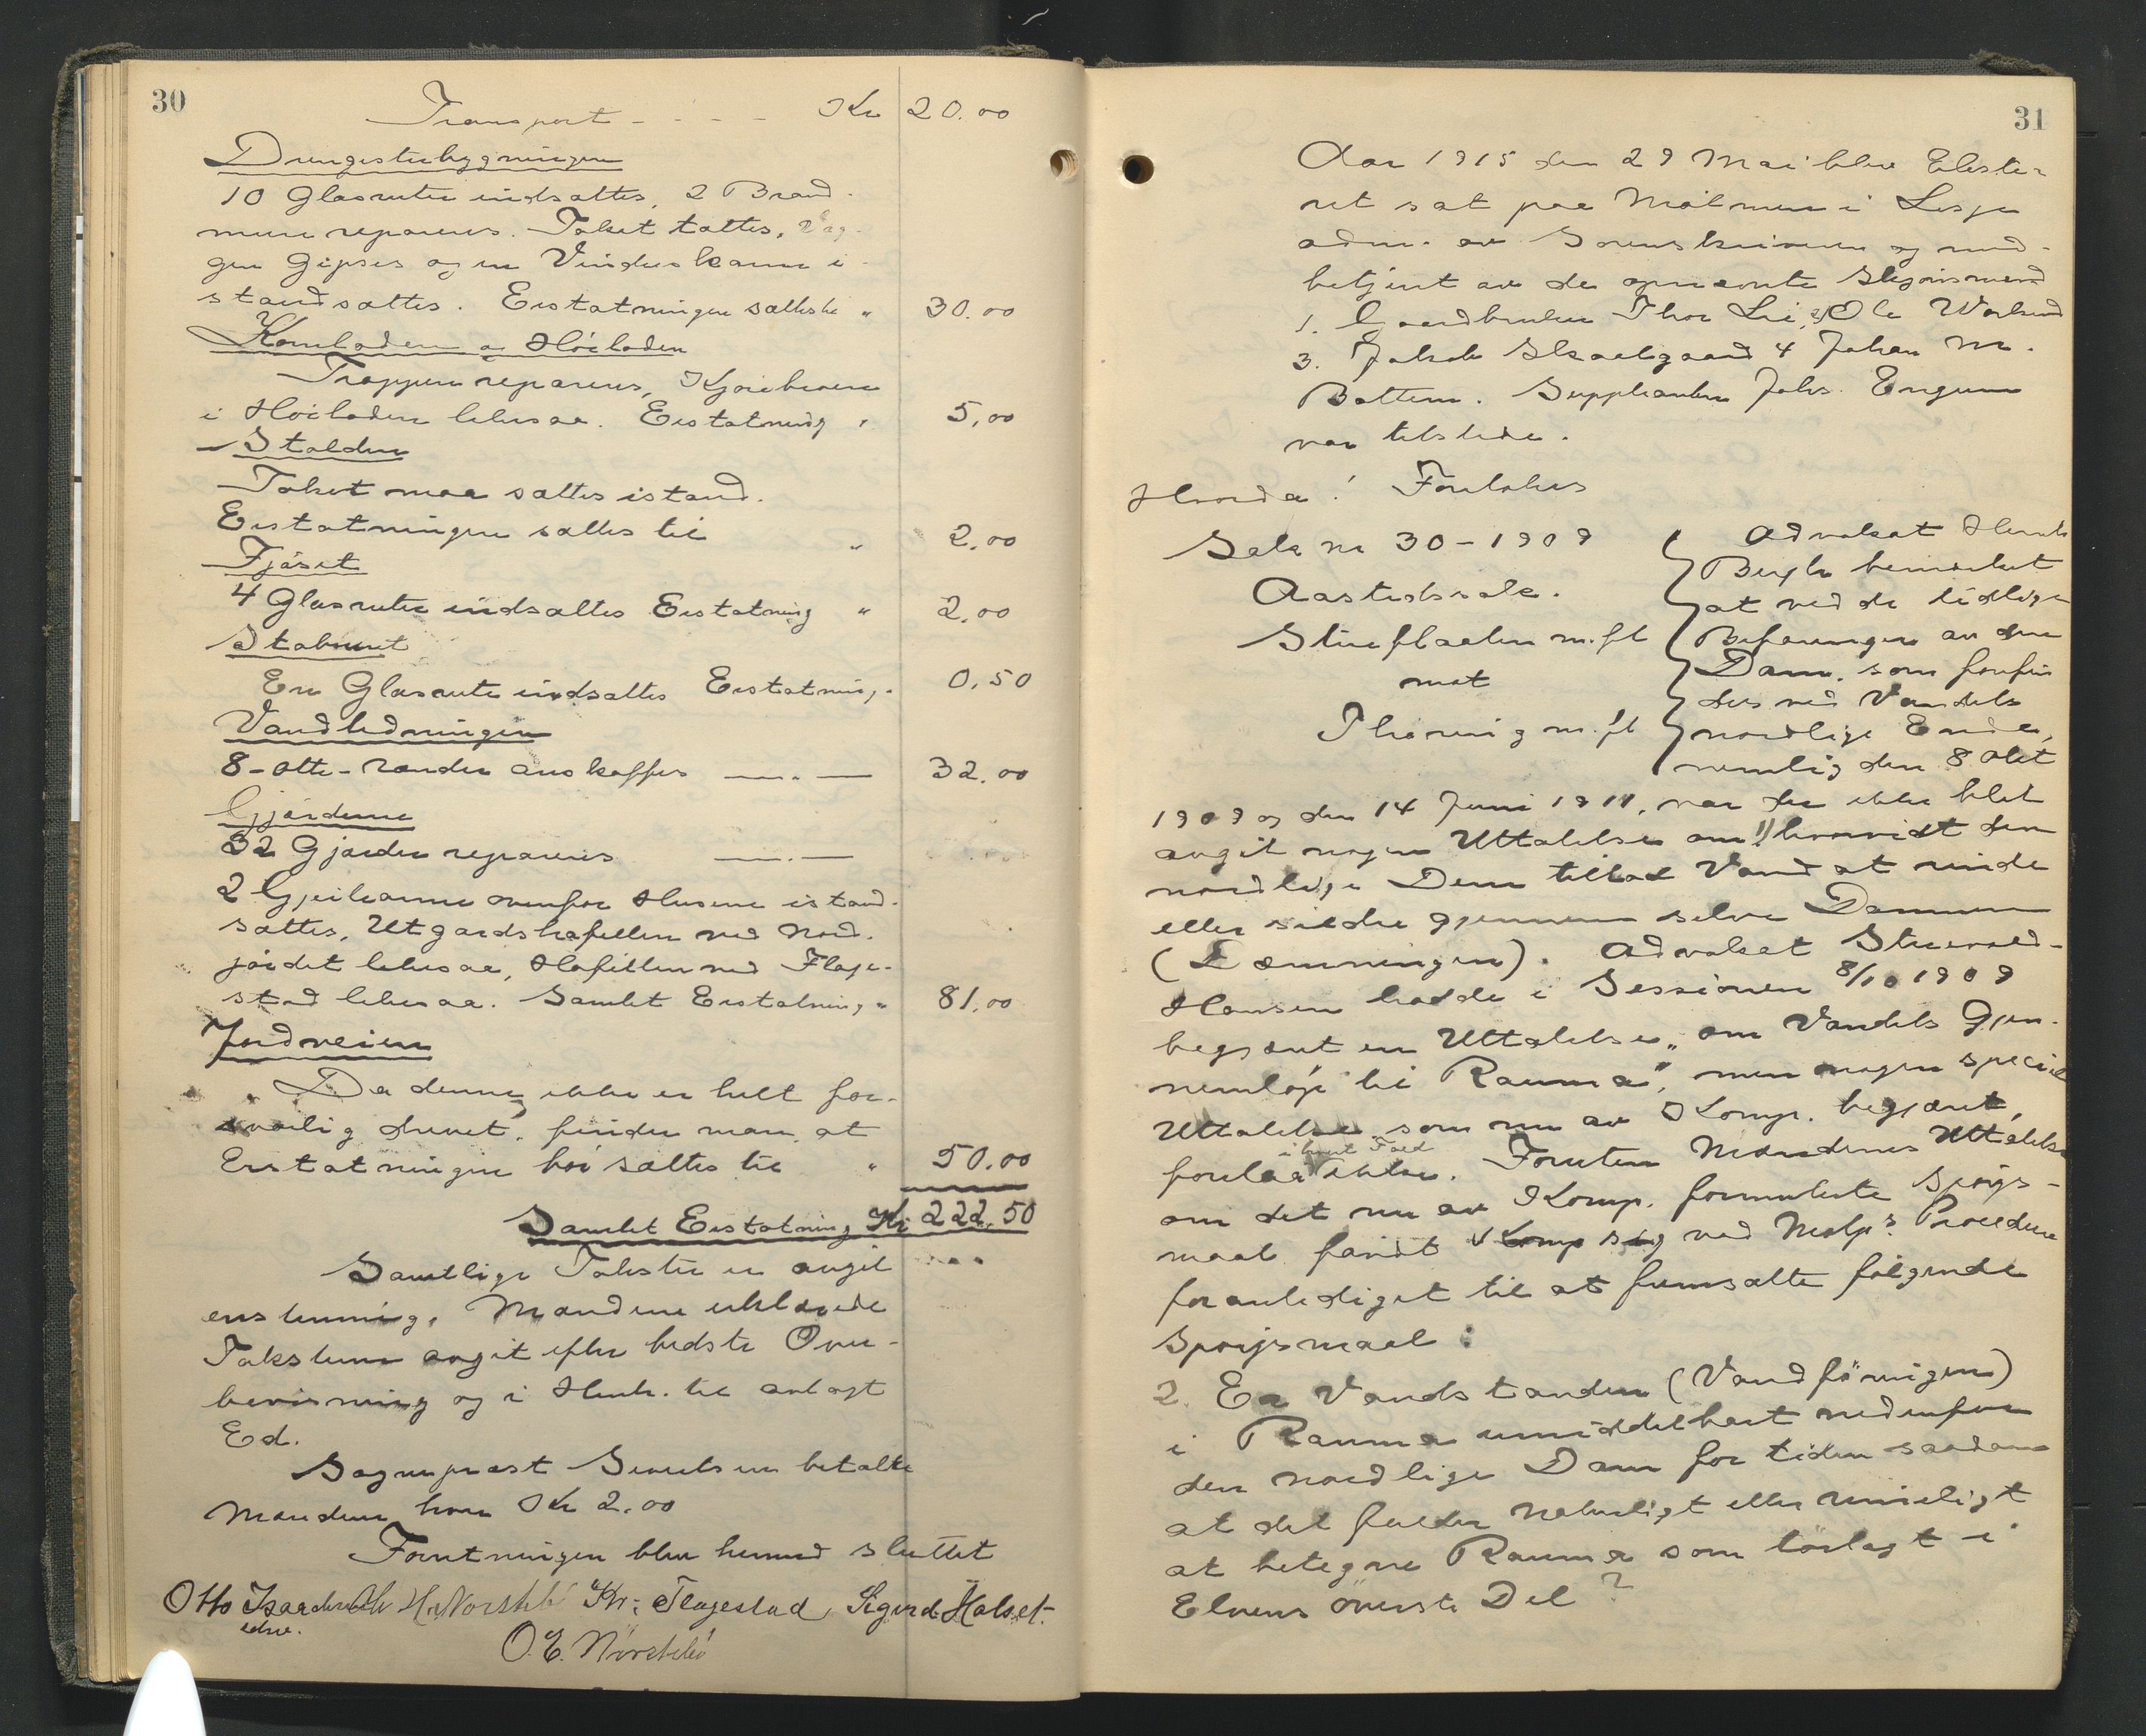 30
Transport - - - - Kr 20.00
Drengestubygningen
10 Glasruter indsættes, 2 Brand-
mure repareres. Taket tættes, Væg-
gen gipses og en Vindueskarm i-
standsættes. Erstatningen sættes til " 30.00
Kornladen og Høiladen
Trappen repareres, Kjørebroen
i Høiladen likesaa. Erstatning " 5,00
Stalden
Taket maa sættes istand.
Erstatningen sættes til " 2,00
Fjøset
4 Glasruter indsættes Erstatning " 2,00
Stabburet
En Glasrute indsættes Erstatning " 0,50
Vandledningen
8-otte-render anskaffes —"— 32.00
Gjærderne
32 Gjærder repareres —"—
2 ovenfor Husene istand-
sættes, Utgardshafellen ved Nord-
jordet likesaa, Hafellen ved Flage-
stad likesaa. Samlet Erstatning " 81,00
Jordveien
Da denne ikke er helt for-
svarlig drevet, finder man, at
Erstatningen bør sættes til " 50.00
Samlet Erstatning Kr 222,50
Samtlige Takster er avgit
enstemmig. Mændene erklærede
Taksterne avgit efter bedste Over-
bevisning og i Henh. til avlagt
Ed.
Sogneprest Sivertsen betalte
Mændene hver Kr 2.00
Forretningen blev hermed sluttet
Otto Isachsen Ole H. Norstebö Kr. Flagestad Sigurd Holset.
edsv.
O. E. Nörstebö
31
Aar 1915 den 29 Mai blev Ekstra-
ret sat paa Mølmen i Lesje
adm. av Sorenskriveren og med-
betjent av de opnævnte Skjønsmænd
1. Gaardbruker Thor Lie, 2) Ole
3. Jakob Skaalgaard 4 Johan M.
Bottem. Suppleanten Johs. Enguen
var tilstede.
Hvorda! Foretokes
Sak nr 30-1909
Aastedssak.
Stueflaaten m.fl
mot
Thøring m.fl
Advokat
bemerket
at ved de tidligere
Befaringer av den
Dam, som forefin-
des ved Vandets
nordlige Ende,
nemlig den 8 Okt
1909 og den 14 Juni 1911, var der ikke blet
avgit nogen Uttalelse om 1) hvorvidt den
nordlige Dam tillot Vand at rinde
eller sildre gjennem selve Dammen
(Dæmningen). Advokat
Hansen hadde i Sessionen 8/10 1909
begjært en Uttalelse "om Vandets Gjen-
nemløp til Rauma", men nogen speciel
Uttalelse som nu av Komp. begjæret,
i hvert Fald
forelaa ikke. Foruten Mændenes Uttalelse
om det nu av Komp. formulerte Spørgs-
maal fandt Komp sig ved Motp.s Procedure
foranlediget til at fremsætte følgende
Spørgsmaal:
2. Er Vandstanden (Vandføringen)
i Rauma umiddelbart nedenfor
den nordlige Dam for tiden saadan
at det falder naturligt eller rimeligt
at betegne Rauma som tørlagt i
Elvens øverste Del?